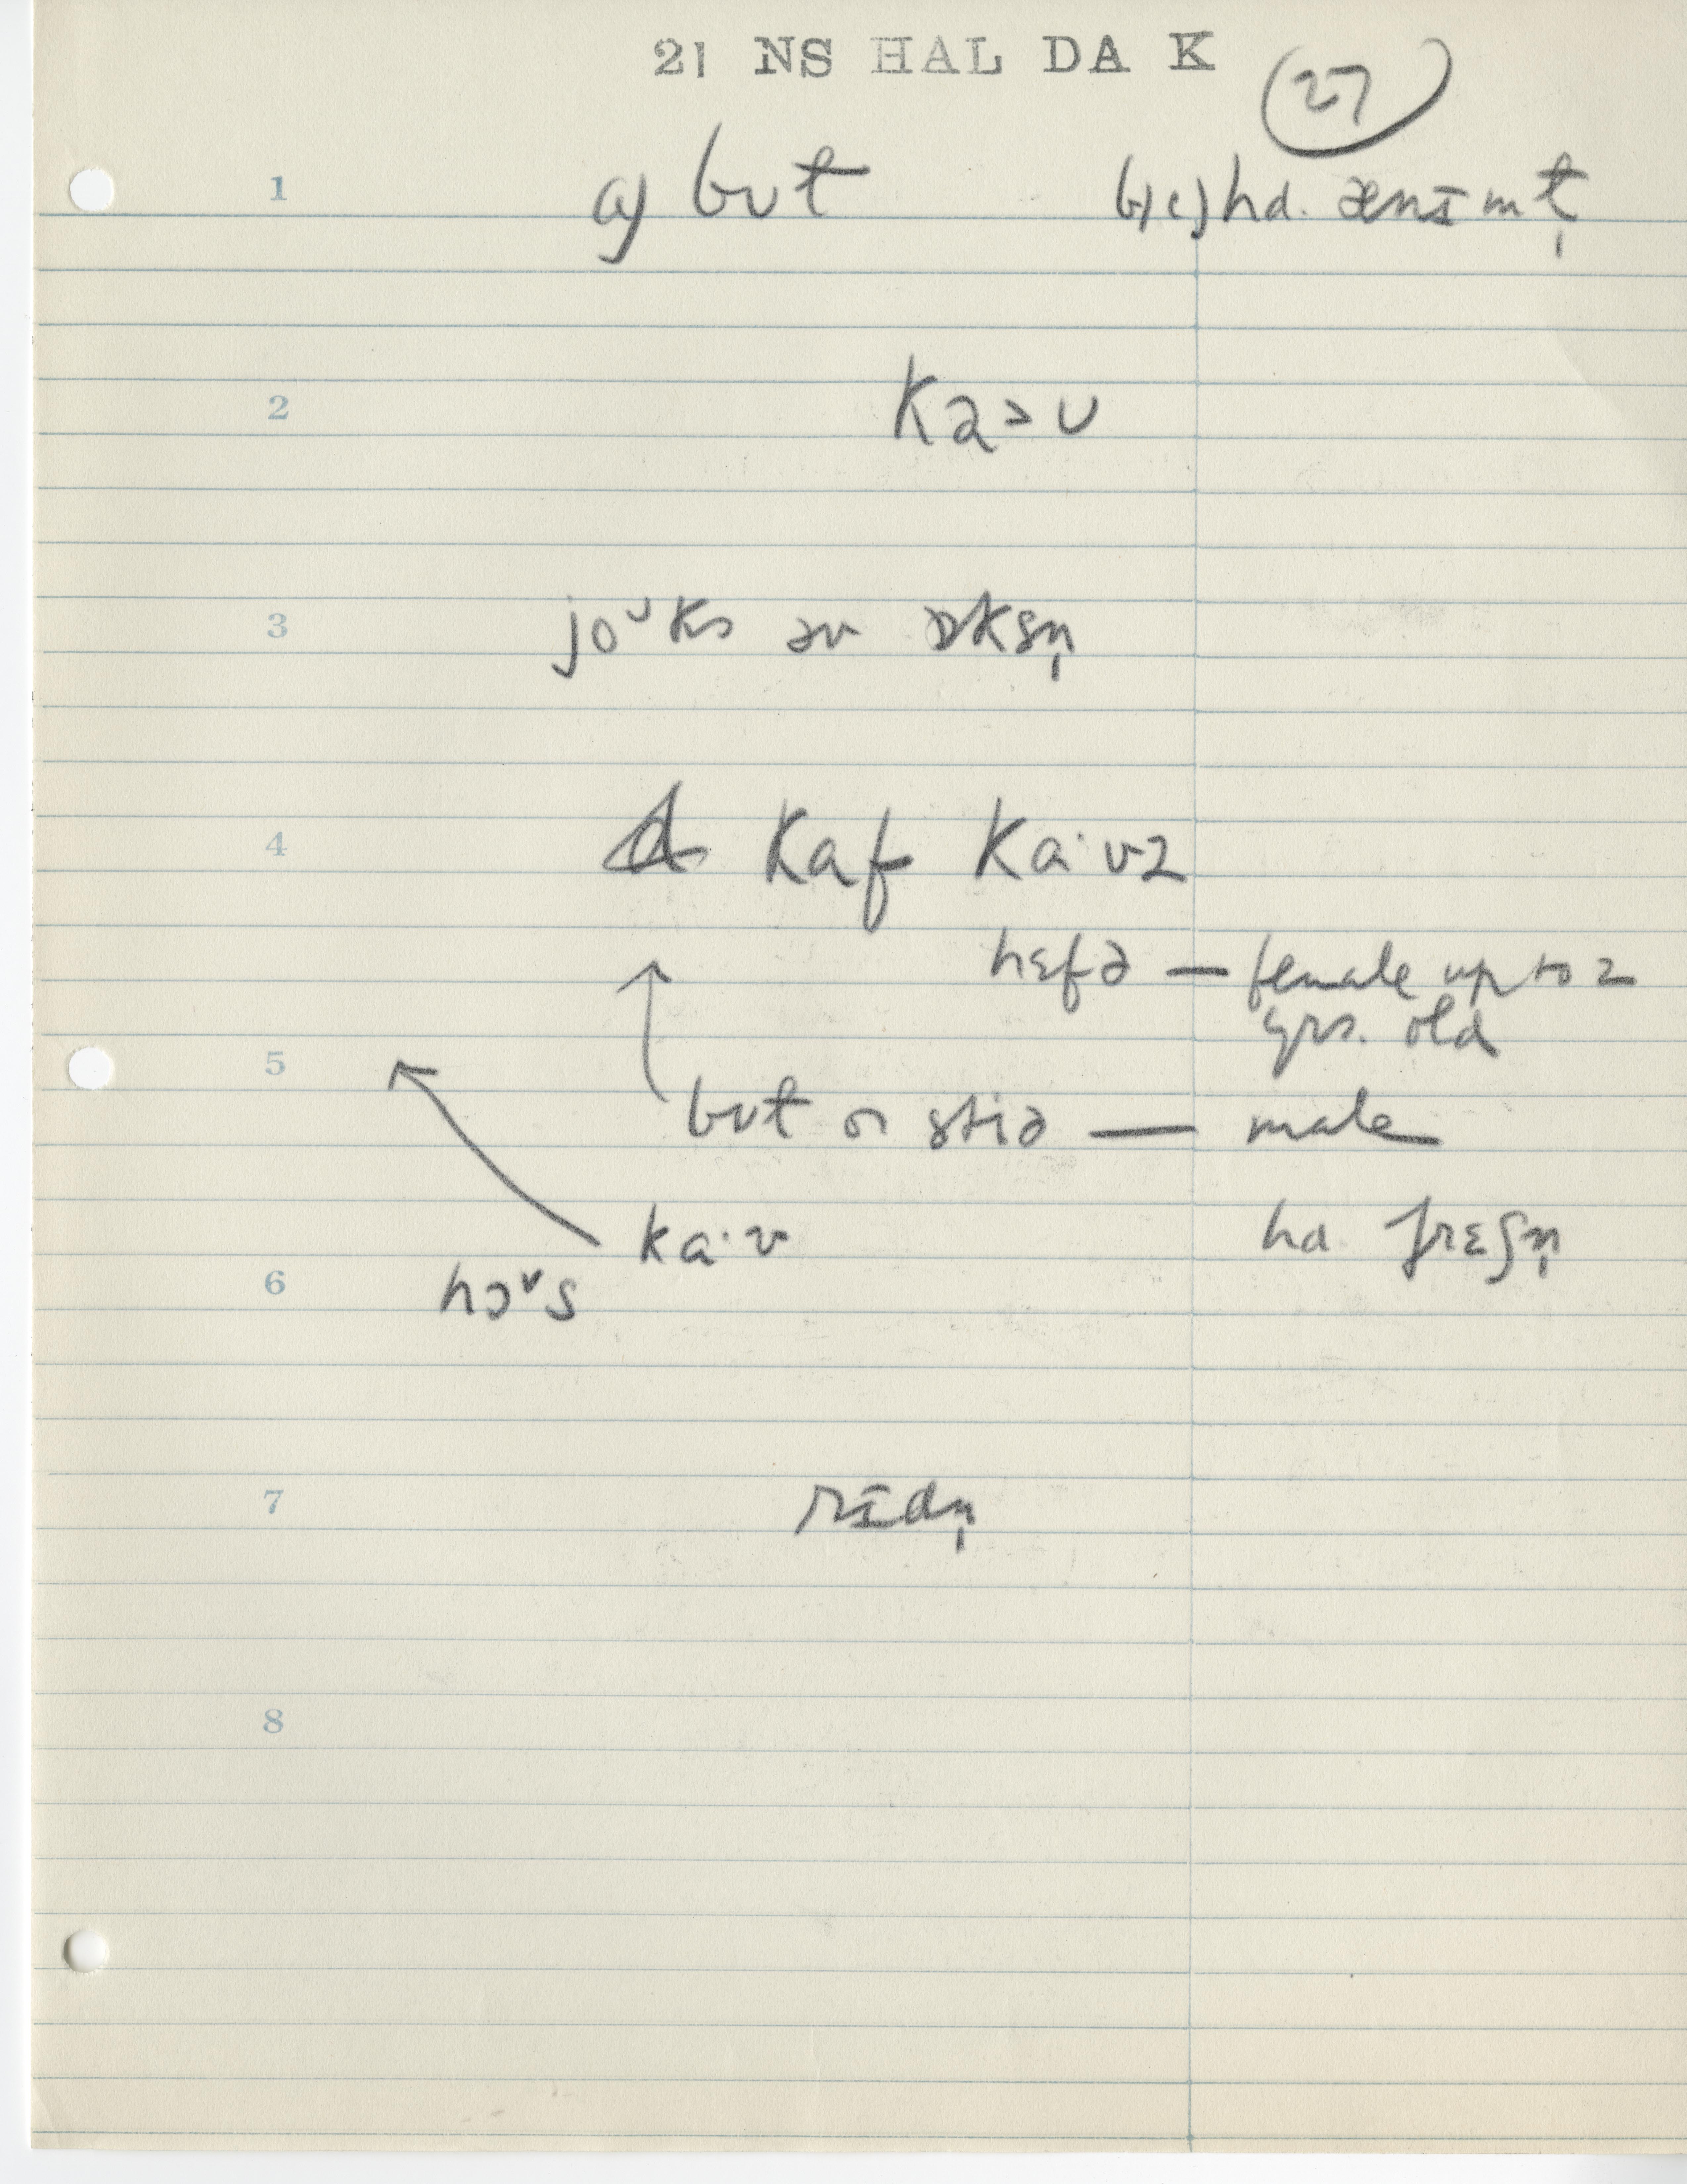 21 NS HAL DA K
27
1 a) bʊt b) c) hd. ænɪmḷt
2 ka>ʊ
3 joᴜks əv ɒksn̩
4 kaf ka·vz
hɛfə — female up to 2
yrs. old
5
bʊt or stiə — male
ka·v hd. frɛʃn̩
6 hɔᴜs
7 rɪdn̩
8